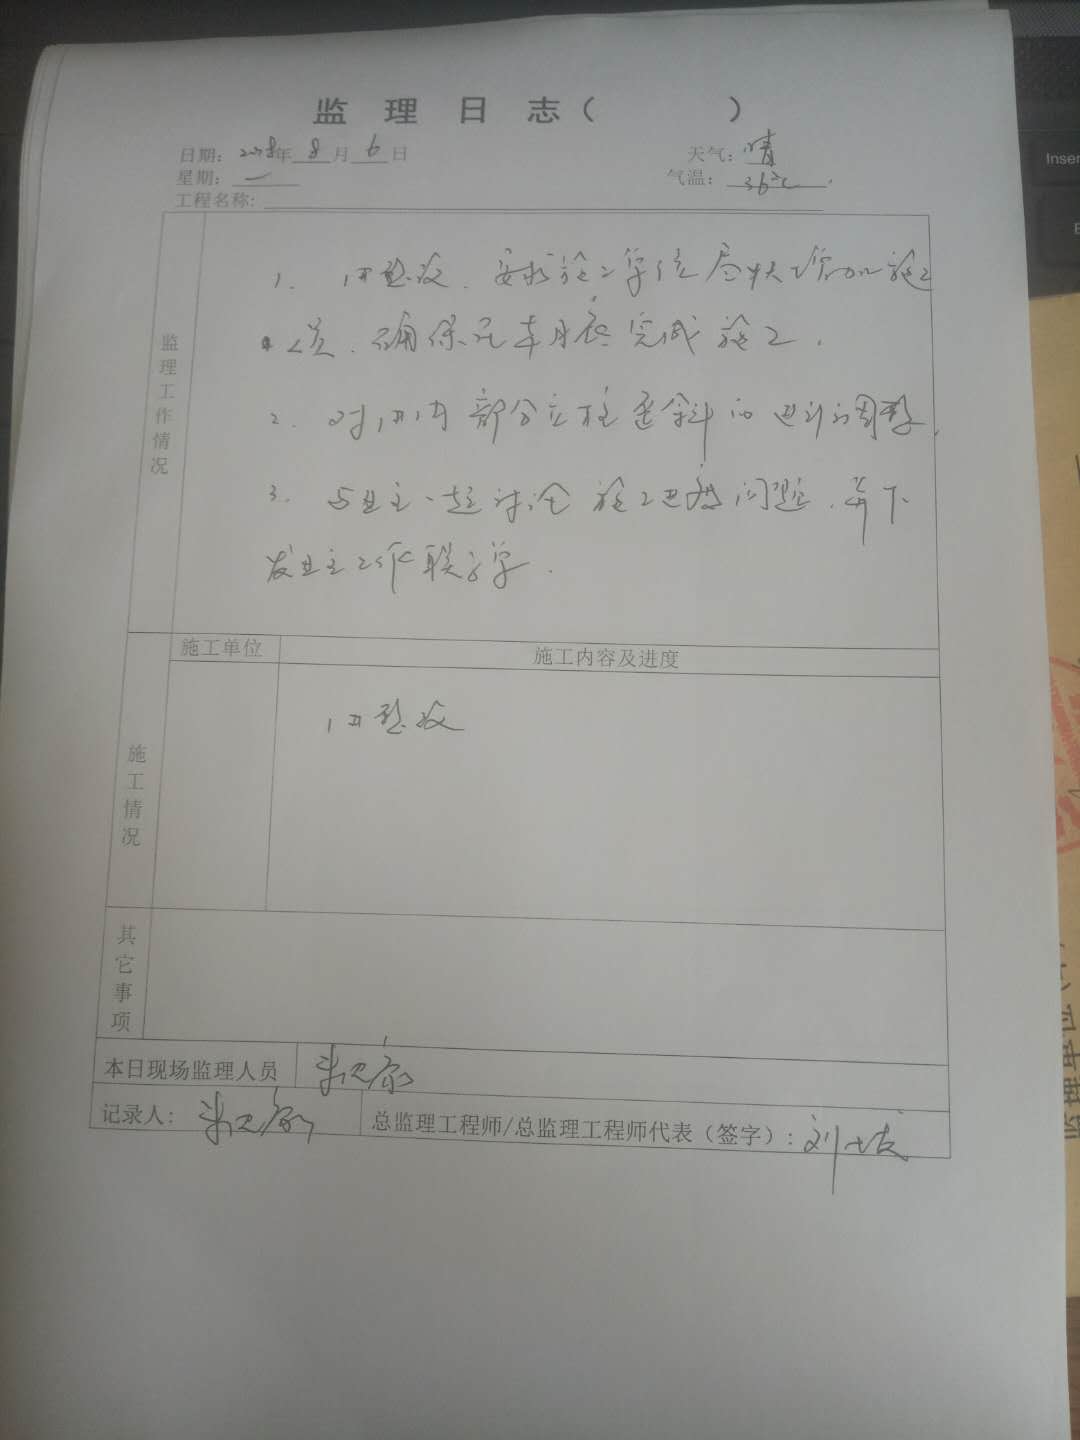 监 理 日 志（ ）
日期：2018年 8 月 6 日 天气：晴
星期：一 气温：36℃
工程名称：
监理工作情况
1. 整改. 要求施工单位尽快增加施工
人员. 确保在本月底完成施工.
2. 对 内部分立柱歪斜的进行调整.
3. 与业主一起讨论施工进度问题. 并下
发业主工作联系单.
施工单位 施工内容及进度
施工情况
整改
其它事项
本日现场监理人员
记录人： 总监理工程师/总监理工程师代表（签字）：刘
Inser